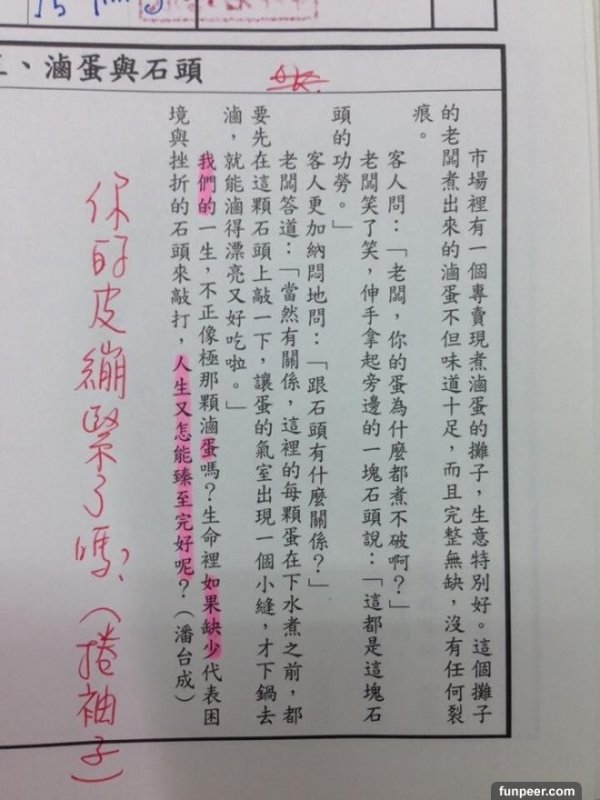 二、滷蛋與石頭
市場裡有一個專賣現煮滷蛋的攤子，生意特別好。這個攤子
的老闆煮出來的滷蛋不但味道十足，而且完整無缺，沒有任何裂
痕。
客人問：「老闆，你的蛋為什麼都煮不破啊？」
老闆笑了笑，伸手拿起旁邊的一塊石頭說：「這都是這塊石
頭的功勞。」
客人更加納悶地問：「跟石頭有什麼關係？」
老闆答道：「當然有關係，這裡的每顆蛋在下水煮之前，都
要先在這顆石頭上敲一下，讓蛋的氣室出現一個小縫，才下鍋去
滷，就能滷得漂亮又好吃啦。」
我們的一生，不正像極那顆滷蛋嗎？生命裡如果缺少代表困
境與挫折的石頭來敲打，人生又怎能臻至完好呢？（潘台成）
你的皮繃緊了嗎？（捲袖子）
funpeer.com